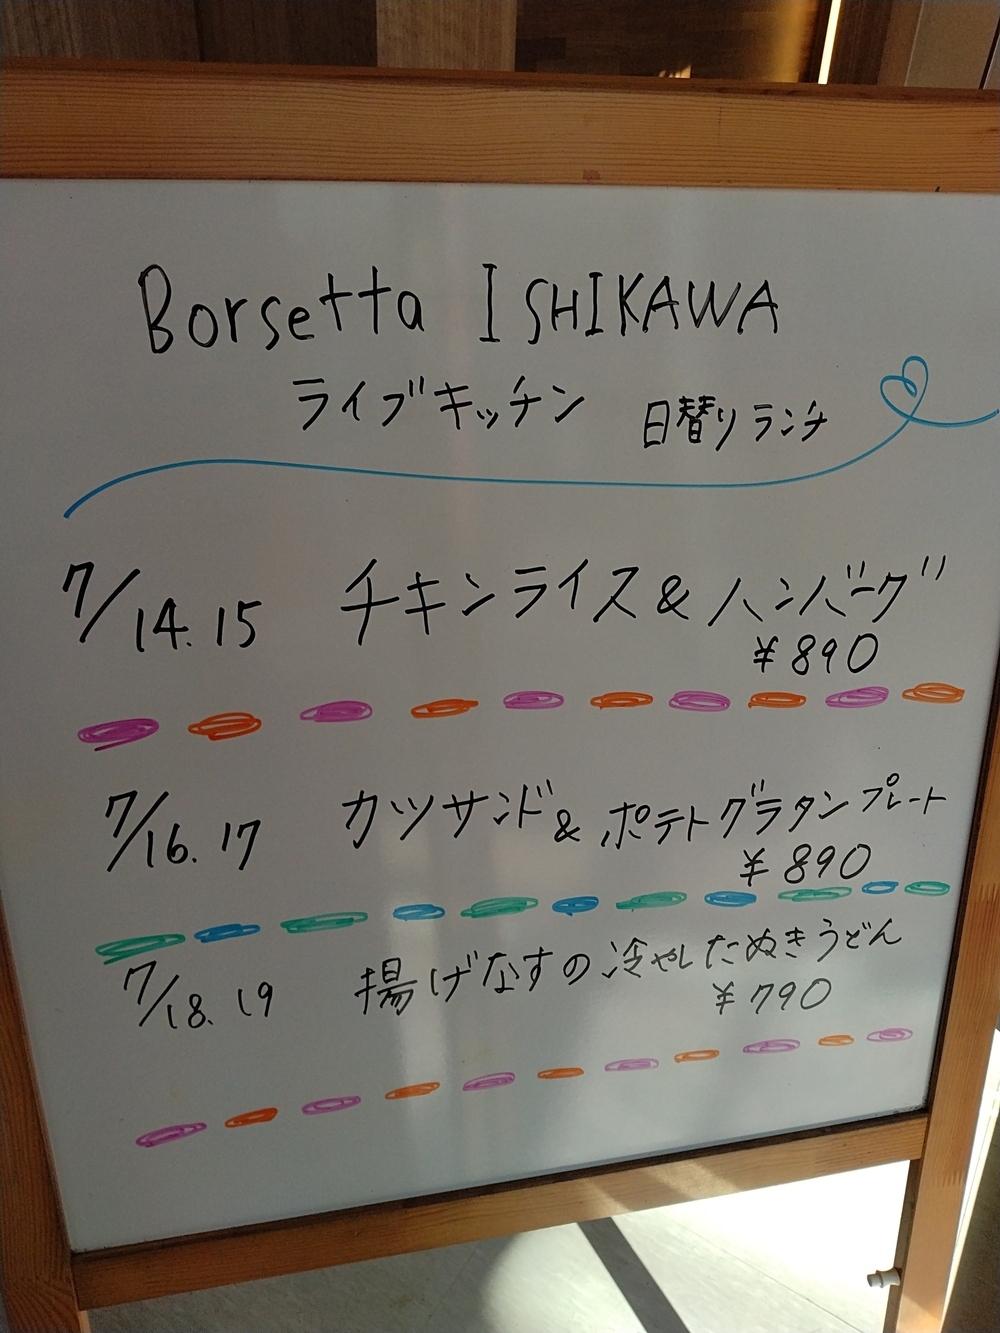 Borsetta ISHIKAWA
ライブキッチン 日替りランチ
7/14.15 チキンライス&ハンバーグ
¥890
7/16.17 カツサンド&ポテトグラタンプレート
¥890
7/18.19 揚げなすの冷やしたぬきうどん
¥790